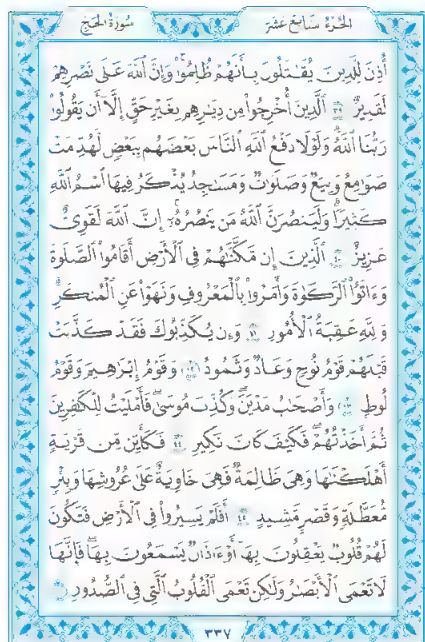 الجزء سابع عشر
سورة الحج
أُذِنَ لِلَّذِينَ يُقَٰتَلُونَ بِأَنَّهُمْ ظُلِمُوا۟ وَإِنَّ ٱللَّهَ عَلَىٰ نَصْرِهِمْ
لَقَدِيرٌ ٣٩ ٱلَّذِينَ أُخْرِجُوا۟ مِن دِيَٰرِهِم بِغَيْرِ حَقٍّ إِلَّآ أَن يَقُولُوا۟
رَبُّنَا ٱللَّهُ وَلَوْلَا دَفْعُ ٱللَّهِ ٱلنَّاسَ بَعْضَهُم بِبَعْضٍ لَّهُدِّمَتْ
صَوَٰمِعُ وَبِيَعٌ وَصَلَوَٰتٌ وَمَسَٰجِدُ يُذْكَرُ فِيهَا ٱسْمُ ٱللَّهِ
كَثِيرًا وَلَيَنصُرَنَّ ٱللَّهُ مَن يَنصُرُهُۥٓ إِنَّ ٱللَّهَ لَقَوِىٌّ
عَزِيزٌ ٤٠ ٱلَّذِينَ إِن مَّكَّنَّٰهُمْ فِى ٱلْأَرْضِ أَقَامُوا۟ ٱلصَّلَوٰةَ
وَءَاتَوُا۟ ٱلزَّكَوٰةَ وَأَمَرُوا۟ بِٱلْمَعْرُوفِ وَنَهَوْا۟ عَنِ ٱلْمُنكَرِ
وَلِلَّهِ عَٰقِبَةُ ٱلْأُمُورِ ٤١ وَإِن يُكَذِّبُوكَ فَقَدْ كَذَّبَتْ
قَبْلَهُمْ قَوْمُ نُوحٍ وَعَادٌ وَثَمُودُ ٤٢ وَقَوْمُ إِبْرَٰهِيمَ وَقَوْمُ
لُوطٍ ٤٣ وَأَصْحَٰبُ مَدْيَنَ وَكُذِّبَ مُوسَىٰ فَأَمْلَيْتُ لِلْكَٰفِرِينَ
ثُمَّ أَخَذْتُهُمْ فَكَيْفَ كَانَ نَكِيرِ ٤٤ فَكَأَيِّن مِّن قَرْيَةٍ
أَهْلَكْنَٰهَا وَهِىَ ظَالِمَةٌ فَهِىَ خَاوِيَةٌ عَلَىٰ عُرُوشِهَا وَبِئْرٍ
مُّعَطَّلَةٍ وَقَصْرٍ مَّشِيدٍ ٤٥ أَفَلَمْ يَسِيرُوا۟ فِى ٱلْأَرْضِ فَتَكُونَ
لَهُمْ قُلُوبٌ يَعْقِلُونَ بِهَآ أَوْ ءَاذَانٌ يَسْمَعُونَ بِهَا فَإِنَّهَا
لَا تَعْمَى ٱلْأَبْصَٰرُ وَلَٰكِن تَعْمَى ٱلْقُلُوبُ ٱلَّتِى فِى ٱلصُّدُورِ ٤٦
٣٣٧